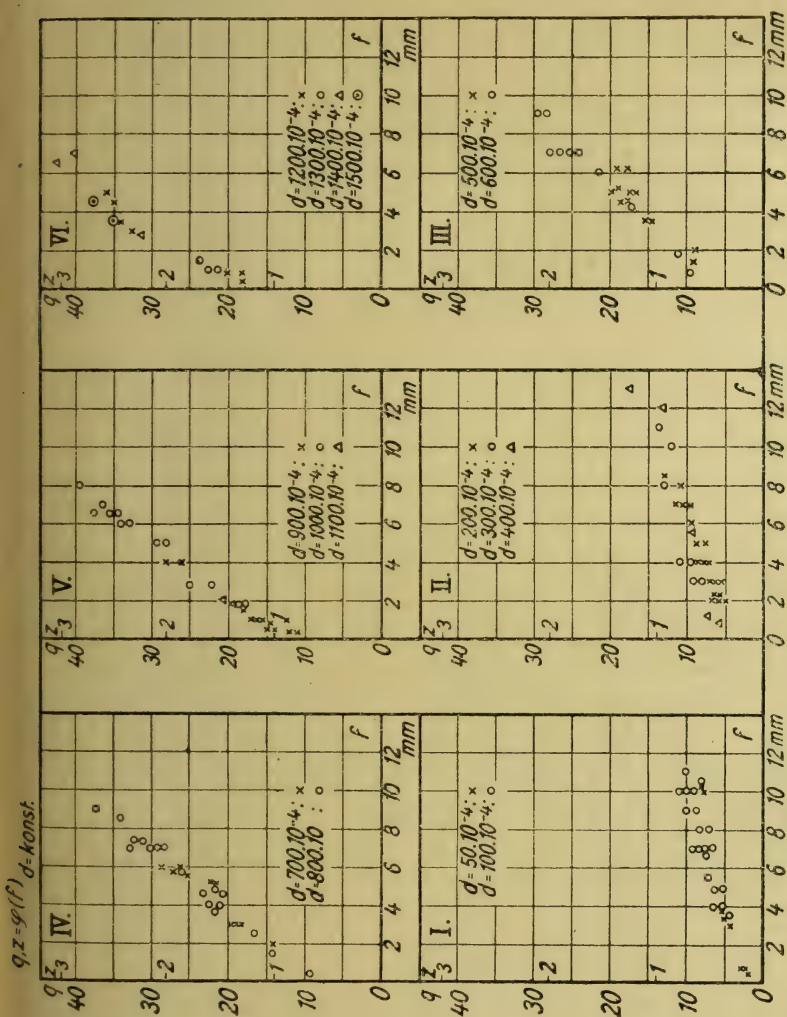 q,z=φ(f) d=konst.
IV.
q z
40 3
30
2
20
1
10
0
2 4 6 8 10 12 mm
f
d=700.10⁻⁴: ×
d=800.10 : ○
V.
q z
40 3
30
2
20
1
10
0
0 2 4 6 8 10 12 mm
f
d=900.10⁻⁴: ×
d=1000.10⁻⁴: ○
d=1100.10⁻⁴: △
VI.
q z
40 3
30
2
20
1
10
0
0 2 4 6 8 10 12 mm
f
d=1200.10⁻⁴: ×
d=1300.10⁻⁴: ○
d=1400.10⁻⁴: △
d=1500.10⁻⁴: ⊙
I.
q z
3
30
2
20
1
10
0
2 4 6 8 10 12 mm
f
d=50.10⁻⁴: ×
d=100.10⁻⁴: ○
II.
q z
40 3
30
2
20
1
10
0
0 2 4 6 8 10 12 mm
f
d=200.10⁻⁴: ×
d=300.10⁻⁴: ○
d=400.10⁻⁴: △
III.
q z
40 3
30
2
20
1
10
0
0 2 4 6 8 10 12 mm
f
d=500.10⁻⁴: ×
d=600.10⁻⁴: ○